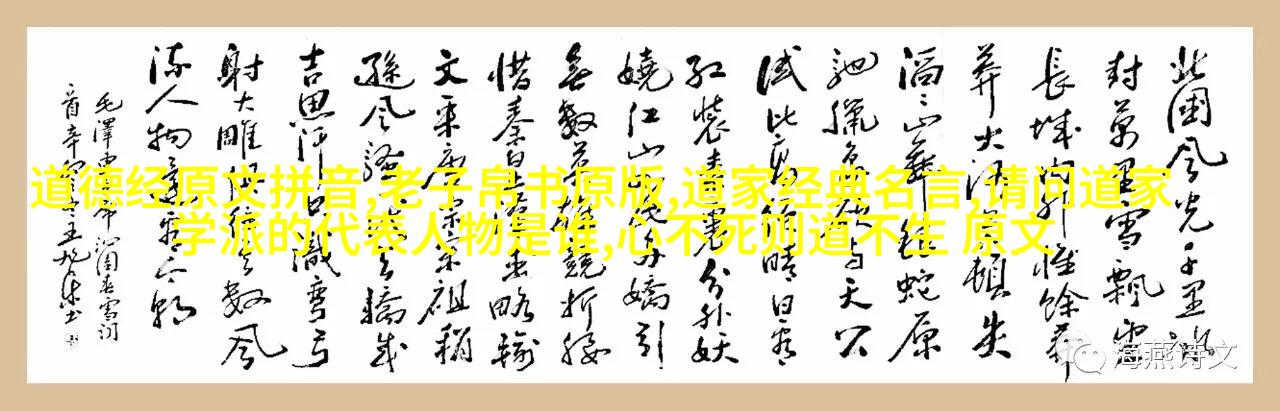 北國风光千里冰
封萬里雪飄望
長城内外惟餘莽
莽大河上下頓失
滔々山舞銀蛇原
馳臘象欲与天公
試比高須晴日看
红装素裹分外妖
嬈江山如此多嬌引
無数英雄競折腰
惜秦皇漢武略輸
文采唐宗宋祖稍
遜风騷一代天驕成
吉思汗只識彎弓
射大雕俱往矣数风
流人物還看今朝
毛澤東 沁園春雪詞
道德经原文拼音,老子帛书原版,道家经典名言,请问道家
学派的代表人物是谁,心不死则道不生 原文
海燕诗文